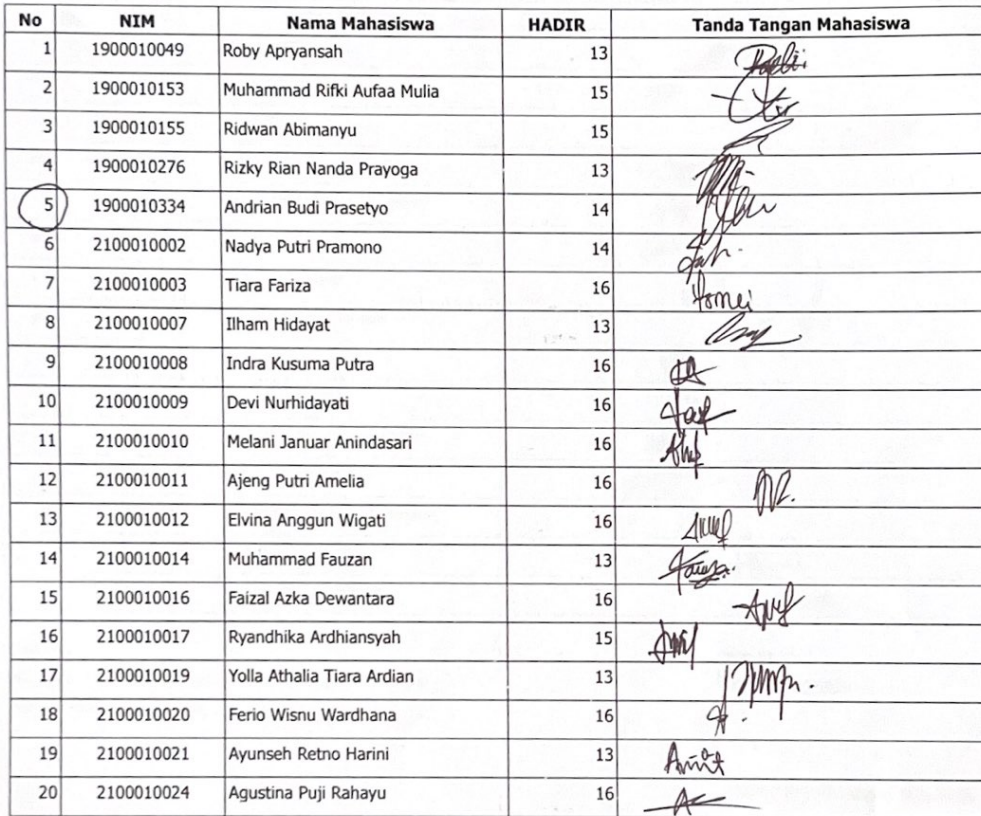 No NIM Nama Mahasiswa HADIR Tanda Tangan Mahasiswa
1 1900010049 Roby Apryansah 13
2 1900010153 Muhammad Rifki Aufaa Mulia 15
3 1900010155 Ridwan Abimanyu 15
4 1900010276 Rizky Rian Nanda Prayoga 13
5 1900010334 Andrian Budi Prasetyo 14
6 2100010002 Nadya Putri Pramono 14
7 2100010003 Tiara Fariza 16
8 2100010007 Ilham Hidayat 13
9 2100010008 Indra Kusuma Putra 16
10 2100010009 Devi Nurhidayati 16
11 2100010010 Melani Januar Anindasari 16
12 2100010011 Ajeng Putri Amelia 16
13 2100010012 Elvina Anggun Wigati 16
14 2100010014 Muhammad Fauzan 13
15 2100010016 Faizal Azka Dewantara 16
16 2100010017 Ryandhika Ardhiansyah 15
17 2100010019 Yolla Athalia Tiara Ardian 13
18 2100010020 Ferio Wisnu Wardhana 16
19 2100010021 Ayunseh Retno Harini 13
20 2100010024 Agustina Puji Rahayu 16